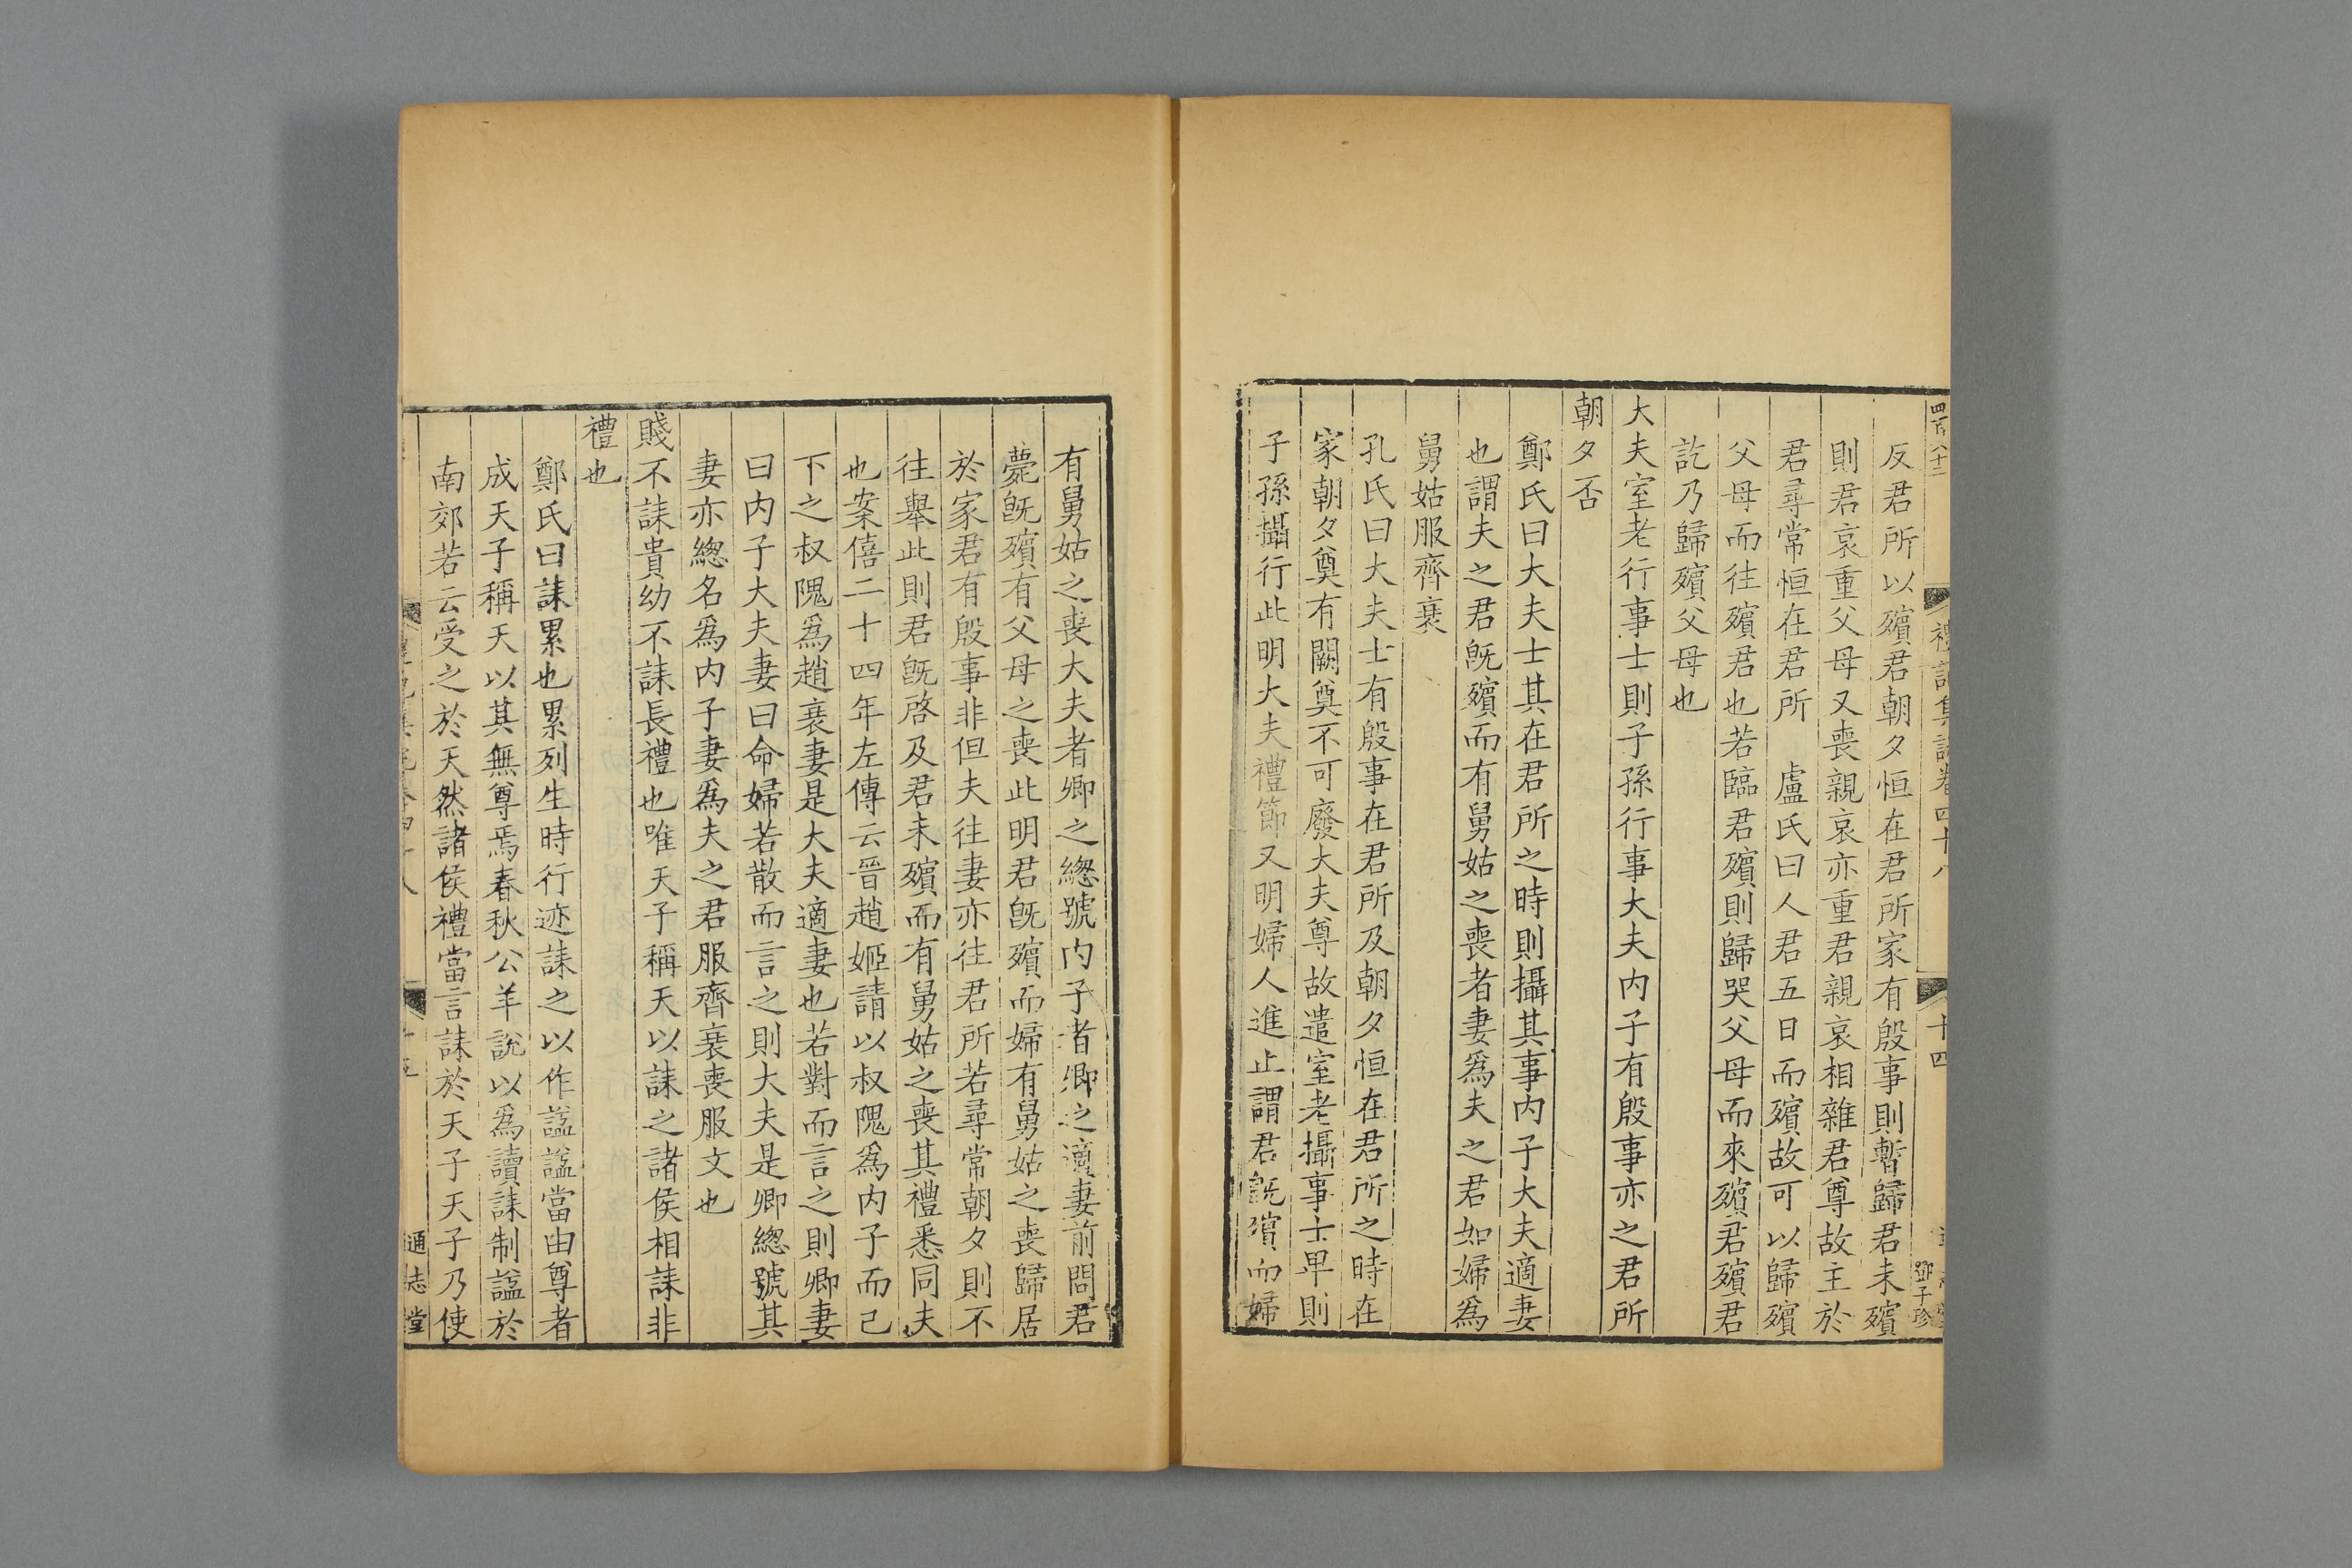 四百八十二
禮記集說卷四十八
十四
鄧子珍
反君所以殯君朝夕恒在君所家有殷事則暫歸君未殯
則君哀重父母又喪親哀亦重君親哀相雜君尊故主於
君尋常恒在君所　盧氏曰人君五日而殯故可以歸殯
父母而往殯君也若臨君殯則歸哭父母而來殯君殯君
訖乃歸殯父母也
大夫室老行事士則子孫行事大夫内子有殷事亦之君所
朝夕否
鄭氏曰大夫士其在君所之時則攝其事内子大夫適妻
也謂夫之君旣殯而有舅姑之喪者妻爲夫之君如婦爲
舅姑服齊衰
孔氏曰大夫士有殷事在君所及朝夕恒在君所之時在
家朝夕奠有闕奠不可廢大夫尊故遣室老攝事士卑則
子孫攝行此明大夫禮節又明婦人進止謂君旣殯而婦
有舅姑之喪大夫者卿之緫號内子者卿之適妻前問君
薨旣殯有父母之喪此明君旣殯而婦有舅姑之喪歸居
於家君有殷事非但夫往妻亦往君所若尋常朝夕則不
往舉此則君旣啓及君未殯而有舅姑之喪其禮悉同夫
也案僖二十四年左傳云晉趙姬請以叔隗爲内子而己
下之叔隗爲趙衰妻是大夫適妻也若對而言之則卿妻
曰内子大夫妻曰命婦若散而言之則大夫是卿緫號其
妻亦緫名爲内子妻爲夫之君服齊衰喪服文也
賤不誄貴幼不誄長禮也唯天子稱天以誄之諸侯相誄非
禮也
鄭氏曰誄累也累列生時行迹誄之以作謚謚當由尊者
成天子稱天以其無尊焉春秋公羊說以爲讀誄制謚於
南郊若云受之於天然諸侯禮當言誄於天子天子乃使
通志堂